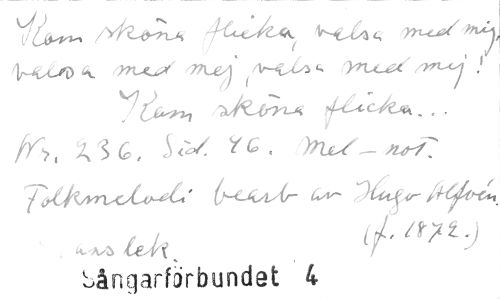 Kom sköna flicka, valsa med mig,
valsa med mej, valsa med mej!
Kom sköna flicka...
Nr. 236. Sid. 46. Mel-not.
Folkmelodi bearb av Hugo Alfvén.
(f. 1872.)
anslek.
Sångarförbundet 4